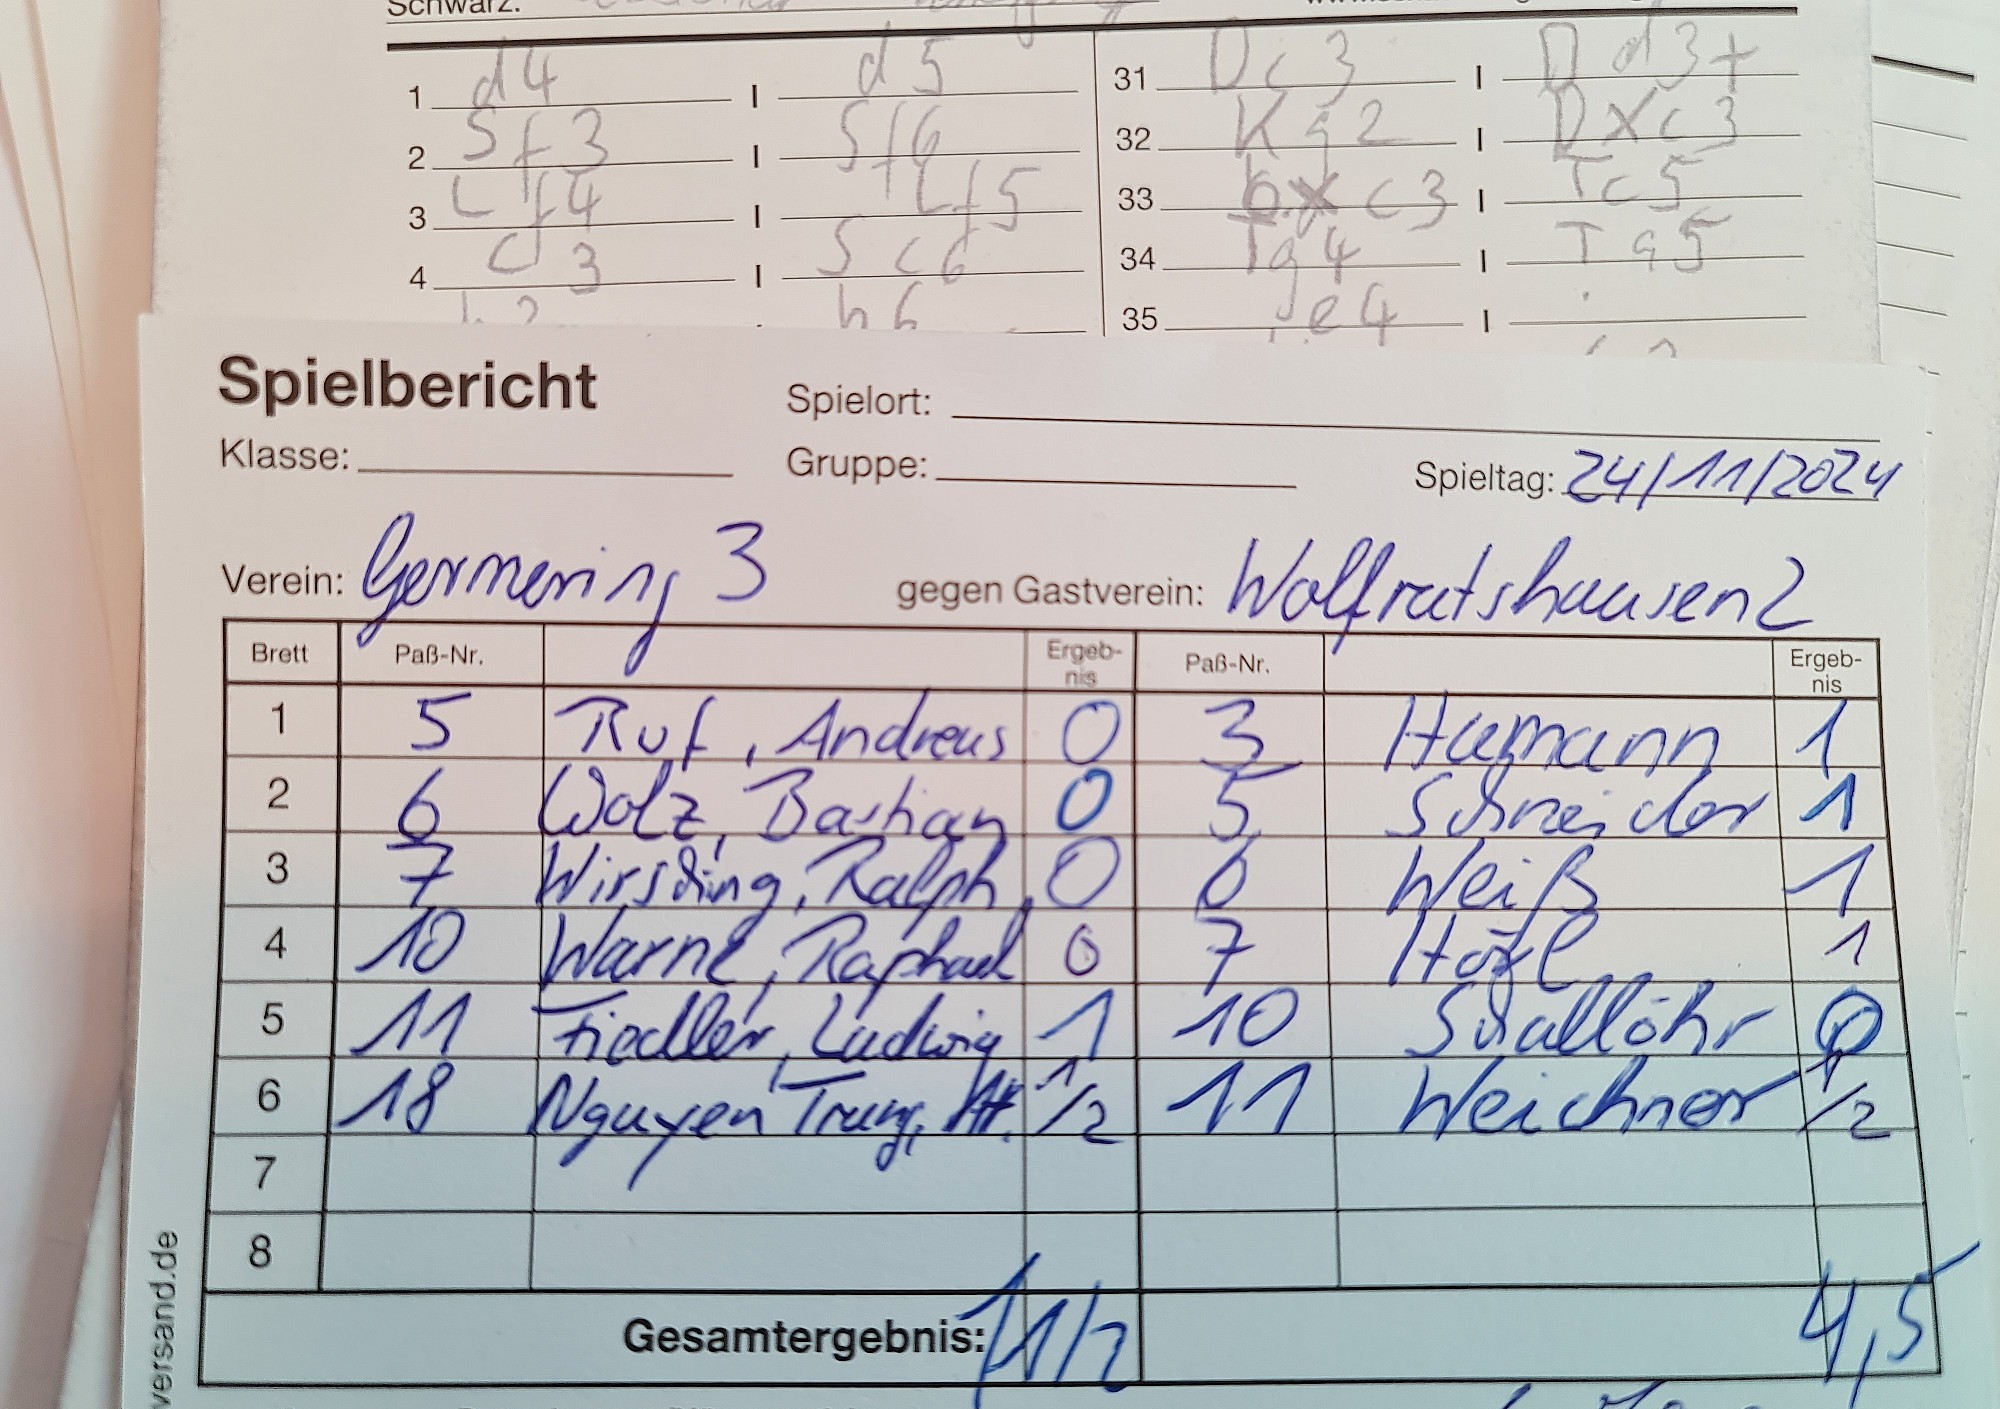 Schwarz:
1 d4 | d5 31 Dc3 | Dd3+
2 Sf3 | Sf6 32 Kg2 | Dxc3
3 Lf4 | Lf5 33 bxc3 | Tc5
4 c3 | Sc6 34 Tg4 | Ta5
h6 35 e4 |
Spielbericht Spielort:
Klasse: Gruppe: Spieltag: 24/11/2024
Verein: Germering 3 gegen Gastverein: Wolfratshausen 2
Brett Paß-Nr. Ergeb-nis Paß-Nr. Ergeb-nis
1 5 Ruf, Andreas 0 3 Hamann 1
2 6 Wolz, Bastian 0 5 Schneider 1
3 7 Wirsding, Ralph 0 6 Weiß 1
4 10 Warne, Raphael 0 7 Hötzl 1
5 11 Fiedler, Ludwig 1 10 Schallöhr 0
6 18 Nguyen Trung, 1/2 11 Weichner 1/2
7
8
Gesamtergebnis: 1 1/2 4,5
versand.de